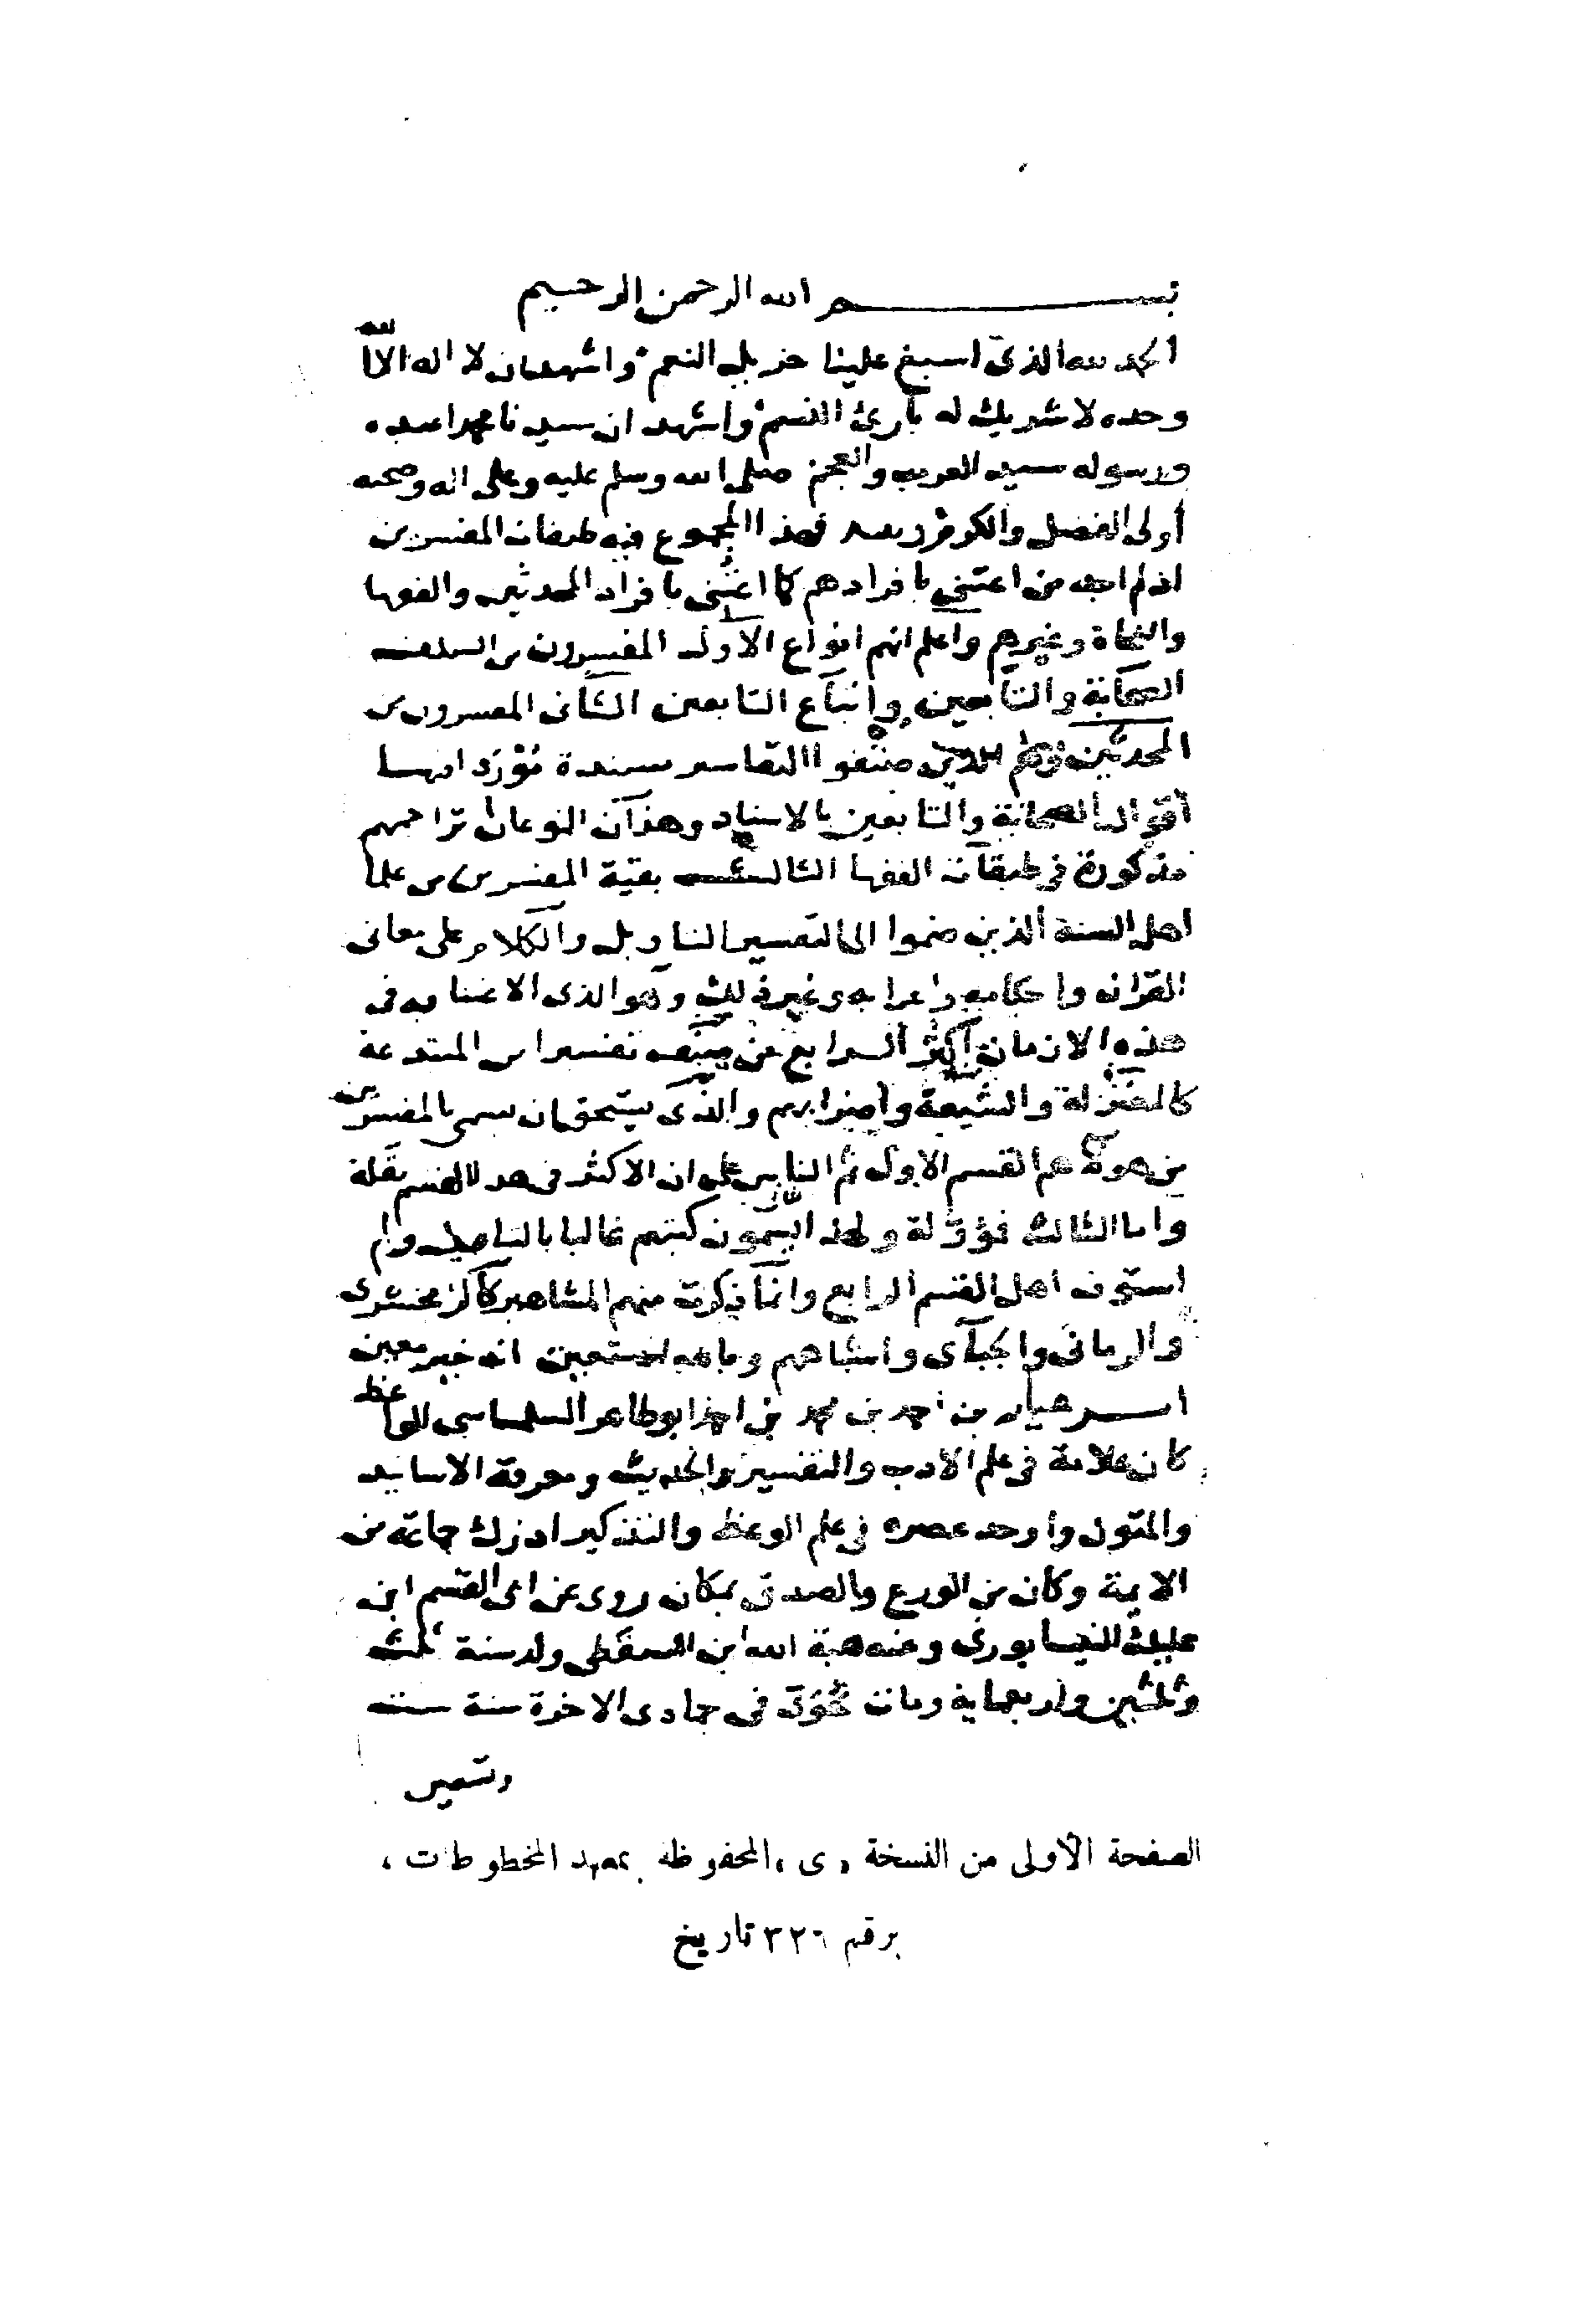 بسم الله الرحمن الرحيم
الحمد لله الذى اسبغ علينا جزيل النعم واشهد ان لا اله الا الله
وحده لا شريك له بارئ النسم واشهد ان سيدنا محمدا عبده
ورسوله سيد العرب والعجم صلى الله وسلم عليه وعلى اله وصحبه
أولى الفضل والكرم وبعد فهذا المجموع فيه طبقات المفسرين
اذ لم اجد من اعتنى بافرادهم كما اعتنى بافراد المحدثين والفقها
والنحاة وغيرهم واعلم انهم انواع الاول المفسرون من السلف
الصحابة والتابعين واتباع التابعين الثانى المفسرون من
المحدثين وهم الذين صنفوا التفاسير مسندة موردا فيها
أقوال الصحابة والتابعين بالاسناد وهذان النوعان تراجمهم
مذكورة فى طبقات الفقها الثالث بقية المفسرين من علما
اهل السنة الذين ضموا الى التفسير التاويل والكلام على معانى
القران واحكامه واعرابه وغير ذلك وهو الذى الاعتنا به فى
هذه الازمان اكثر الرابع من صنف تفسيرا من المبتدعة
كالمعتزلة والشيعة واضرابهم والذى يستحق ان يسمى بالمفسرين
من هولاء هم القسم الاول ثم الثانى على ان الاكثر فى هذا القسم نقلة
واما الثالث فمؤولة ولهذا يسمون كتبهم غالبا بالتاويل ولم
استوف اهل القسم الرابع وانما ذكرت منهم المشاهير كالزمخشرى
والرمانى والجبآى واشباههم وبالله استعين انه خير معين
ابرهيم بن احمد بن محمد بن احمد ابو طاهر السلماسى الواعظ
كان علامة فى علم الادب والتفسير والحديث ومعرفة الاسانيد
والمتون واوحد عصره فى علم الوعظ والتذكير ادرك جماعة من
الايمة وكان من الورع والصدق بمكان روى عن ابى القسم ابن
عليك النيسابورى وعنه هبة الله ابن السقطى ولد سنة ثلث
وثلثين واربعماية ومات بخوى فى جمادى الاخرة سنة ست
وتسعين
الصفحة الأولى من النسخة «ى» المحفوظه بمعهد المخطوطات ،
برقم ٣٢٦ تاريخ